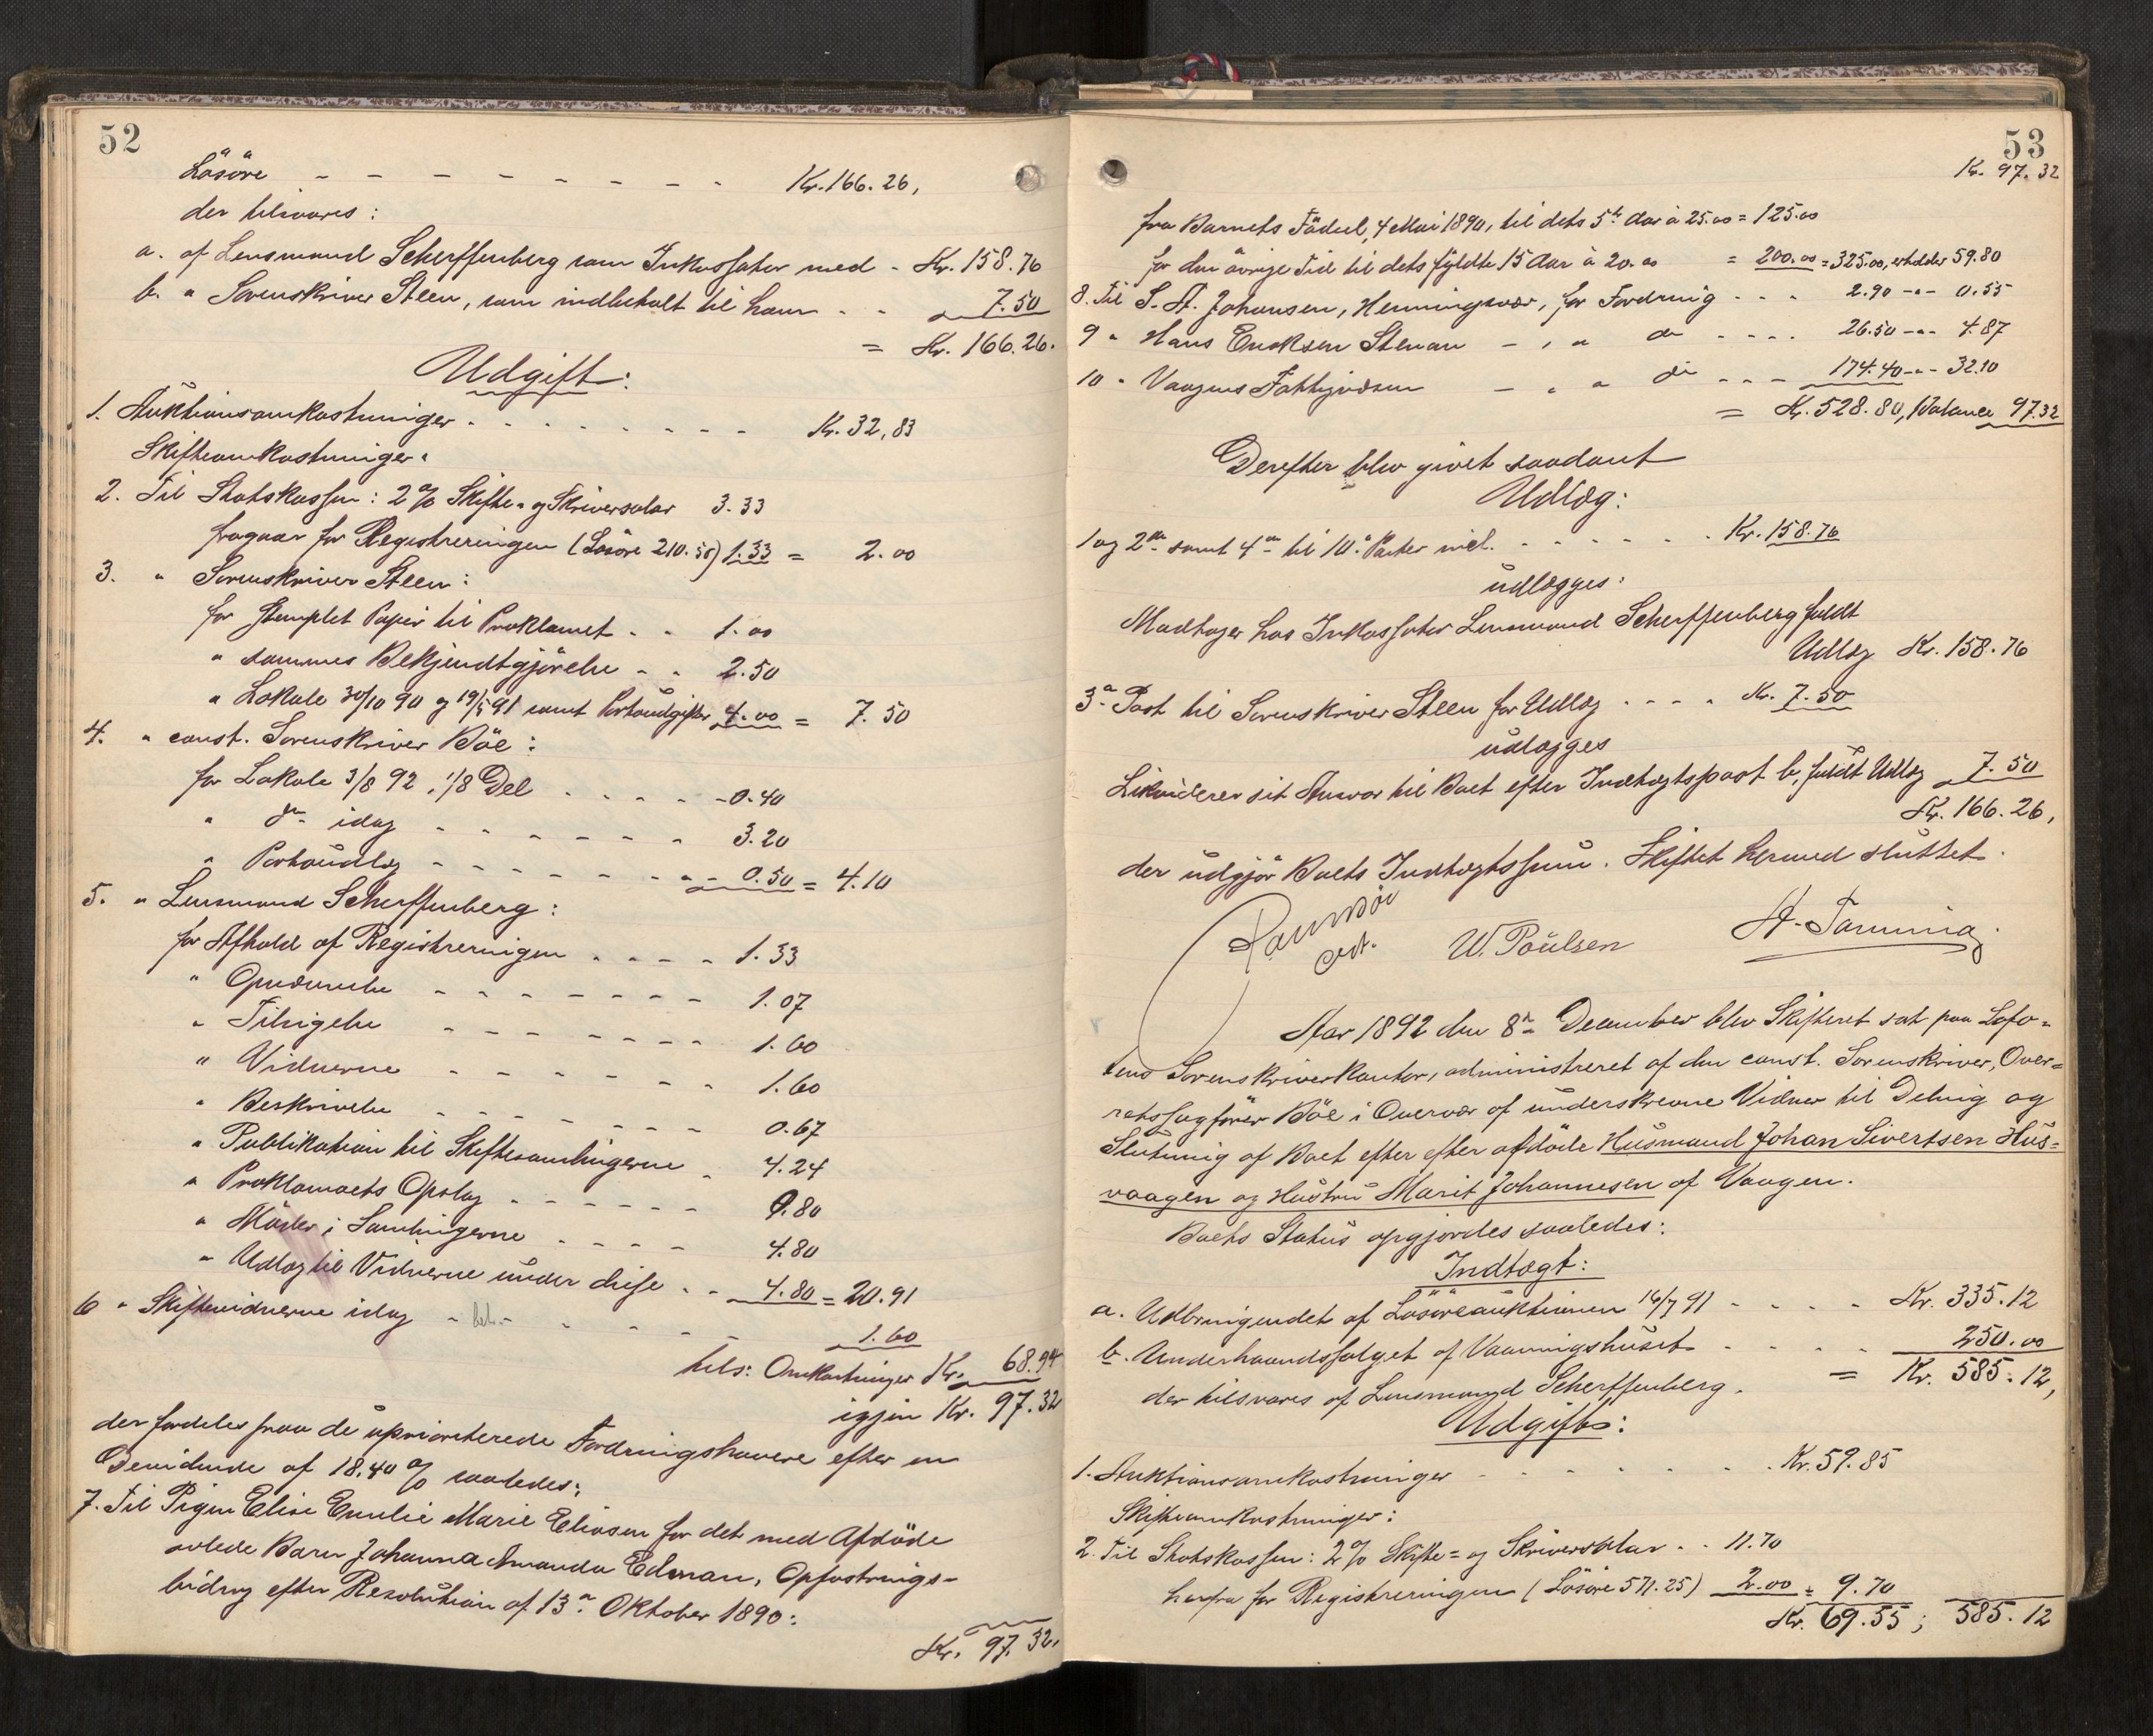 52
Løsøre - - - - - - - - - Kr. 166.26,
der tilsvares:
a. af Lensmand Scherffenberg som Inkassator med - Kr. 158.76
b. " Sorenskriver Steen, som indbeholdt til ham - - " 7.50
= Kr. 166.26.
Udgift:
1. Auktionsomkostninger - - - - - - - - Kr. 32,83
Skifteomkostninger:
2. Til Statskassen: 2 % Skifte- og Skriversalær 3.33
fragaar for Registreringen (Løsøre 210.50) 1.33 = 2.00
3. " Sorenskriver Steen:
for stemplet Papir til Proklamet - - 1.00
" sammes Bekjendtgjørelse - - 2.50
" Lokale 30/10 90 og 19/5 91 samt Portoudgifter 4.00 = 7.50
4. " const. Sorenskriver Böe:
for Lokale 3/8 92, 1/8 Del - - - - - 0.40
" do idag - - - - - - 3.20
" Portoudlæg - - - - - - - 0.50 = 4.10
5. " Lensmand Scherffenberg:
for Afhold af Registreringen - - - - 1.33
" - - - - - - - 1.07
" Tilsigelse - - - - - - - 1.60
" Vidnerne - - - - - - - 1.60
" Beskrivelse - - - - - - 0.67
" Publikation til Skiftesamlingerne - 4.24
" Proklamaets Opslag - - - - - - 0.80
" Møder i Samlingerne - - - - 4.80
" Udlæg til Vidnerne under disse - - 4.80 = 20.91
6 " Skiftevidnerne idag - - - - - - 1.60
tils: Omkostninger Kr. 68.94
igjen Kr. 97.32
der fordeles paa de uprioriterede Fordringshavere efter en
Devidende af 18,40 % saaledes:
7. Til Pigen Elise Emilie Marie Eliasen for det med Afdøde
avlede Barn Johanna Amanda Edman, Opfostrings-
bidrag efter Resolution af 13de Oktober 1890:
Kr. 97.32.
53
Kr. 97.32
fra Barnets Fødsel, 4 Mai 1890, til dets 5te Aar à 25.00 = 125.00
for den øvrige Tid til dets fyldte 15 Aar à 20.00 = 200.00 = 325.00, erholder 59.80
8. Til S. A. Johansen, Henningsvær, for Fordring - - - 2.90 -"- 0.55
9 " Hans Enoksen - , " do - - - - 26.50 -"- 4.87
10 " Vaagens Fattigvæsen - " " do - - - 174.40 -"- 32.10
= Kr. 528.80, Balance 97.32
Derefter blev givet saadant
Udlæg:
1 og 2den samt 4de til 10de Poster incl. - - - - - - Kr. 158.76
udlægges:
Modtager hos Inkassator Lensmand Scherffenberg fuldt
Udlæg Kr. 158.76
3die Post til Sorenskriver Steen for Udlæg - - - - Kr. 7.50
udlægges
Likviderer sit Ansvar til Boet efter Indtægtspost b, fuldt Udlæg 7.50
Kr. 166.26,
der udgjør Boets Indtægtssum. Skiftet hermed sluttet.
cst. W. Poulsen
Aar 1892 den 8de December blev Skifteret sat paa Lofo-
tens Sorenskriverkontor, administreret af den const. Sorenskriver, Over-
retssagfører Böe i Overvær af underskrevne Vidner til Deling og
Slutning af Boet efter efter afdøde Husmand Johan Sivertsen Hus-
vaagen og Hustru Marit Johannesen af Vaagen.
Boets Status opgjordes saaledes:
Indtægt:
a. Udbringendet af Løsøreauktionen 14/7 91 - - - - Kr. 335.12
b. Underhaandssalget af Vaaningshuset - - - - - 250.00
= Kr. 585.12,
der tilsvares af Lensmand Scherffenberg.
Udgift:
1. Auktionsomkostninger - - - - - - - Kr. 59.85
Skifteomkostninger:
2. Til Statskassen: 2 % Skifte- og Skriversalær - - 11.70
herfra for Registreringen (Løsøre 571.25) 2.00 = 9.70
Kr. 69.55; 585.12